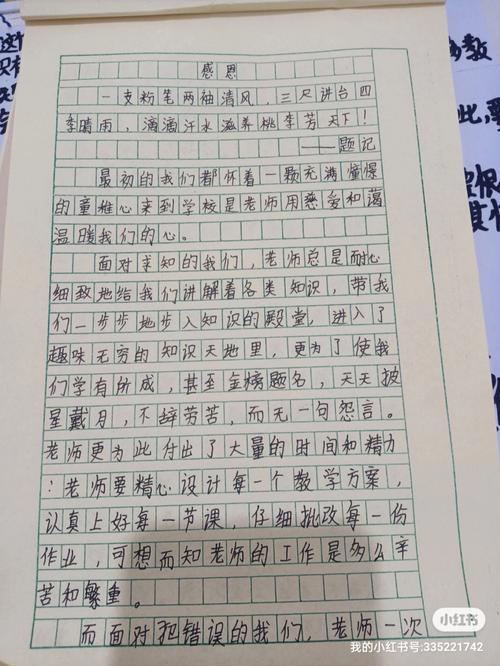 感恩
一支粉笔两袖清风，三尺讲台四
季晴雨，滴滴汗水滋养桃李芳天下！
——题记
最初的我们都怀着一颗充满憧憬
的童稚心来到学校是老师用慈爱和蔼
温暖我们的心。
面对求知的我们，老师总是耐心
细致地给我们讲解着各类知识，带我
们一步步地步入知识的殿堂，进入了
趣味无穷的知识天地里，更为了使我
们学有所成，甚至金榜题名，天天披
星戴月，不辞劳苦，而无一句怨言。
老师更为此付出了大量的时间和精力
：老师要精心设计每一个教学方案，
认真上好每一节课，仔细批改每一份
作业，可想而知老师的工作是多么辛
苦和繁重。
而面对犯错误的我们，老师一次
小红书
我的小红书号:335221742